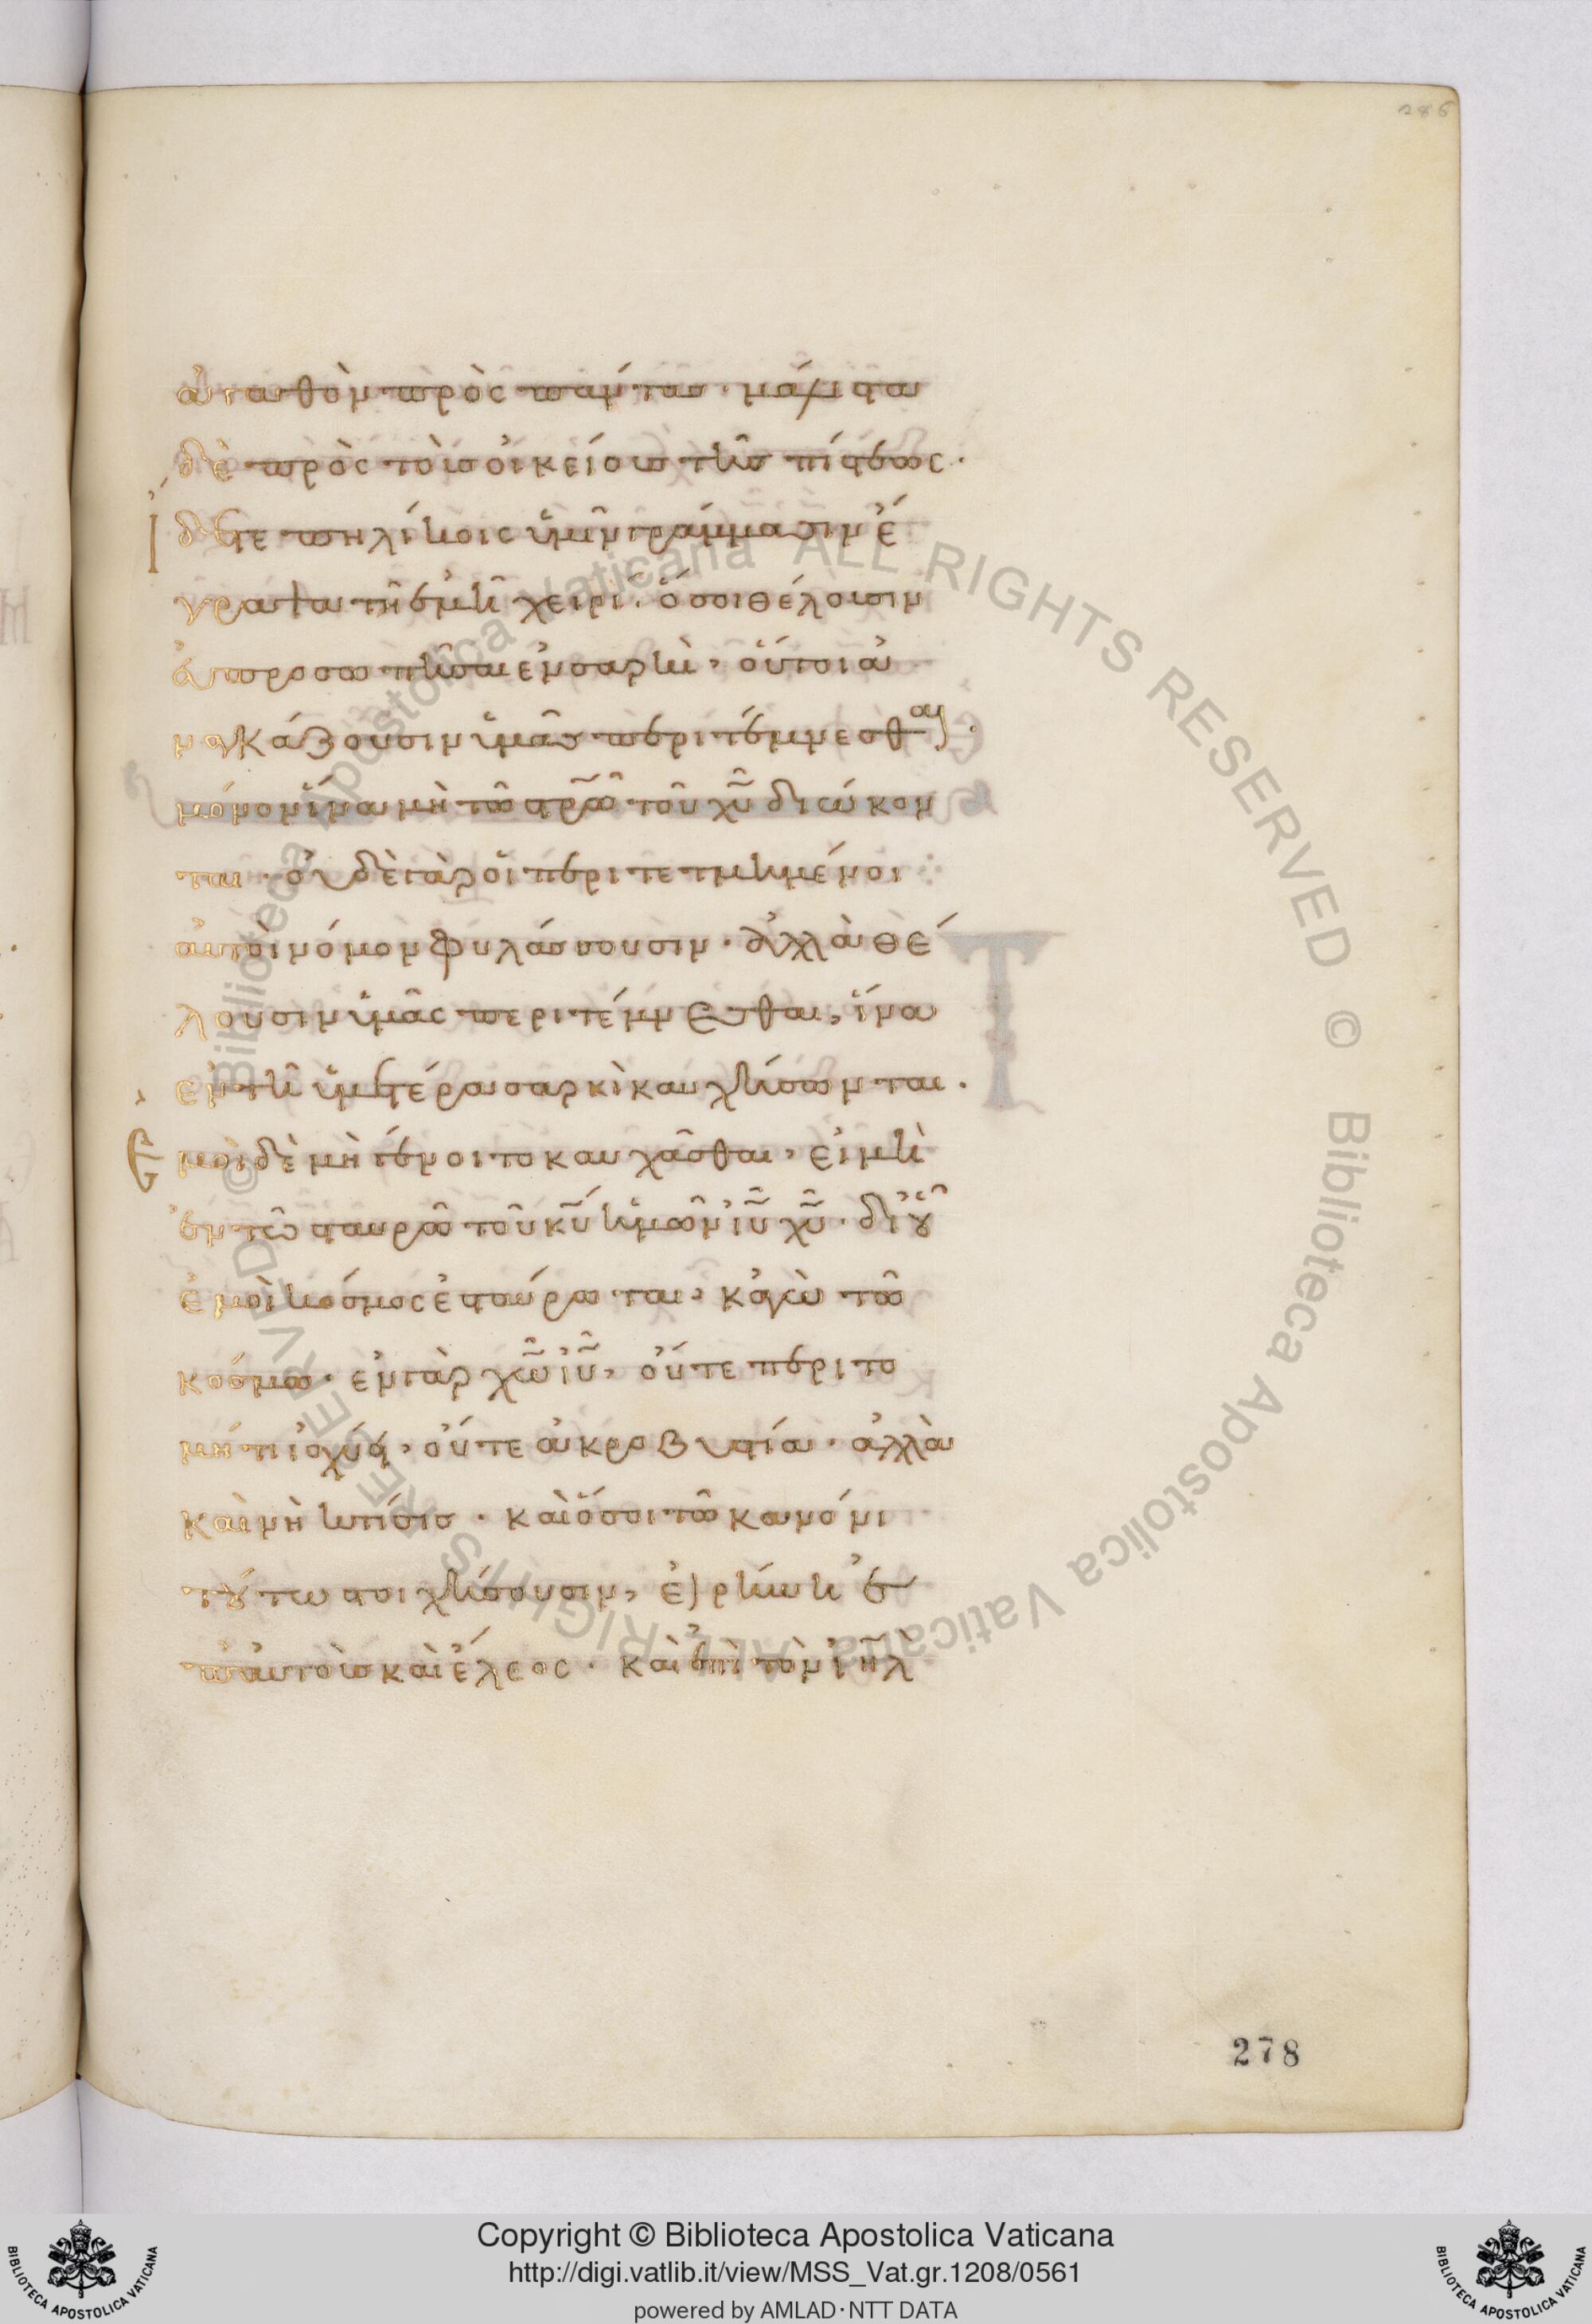 286
ἀγαθὸν πρὸς πάντας· μάλιστα
δὲ πρὸς τοὺς οἰκείους τῆς πίστεως·
Ἴδετε πηλίκοις ὑμῖν γράμμασιν ἔ
γραψα τῆ ἐμῆ χειρί· ὅσοι θέλουσιν
ἀπροσωπῆσαι ἐν σαρκὶ, οὗτοι ἀ
ναγκάζουσιν ὑμᾶς περιτέμνεσθαι·
μόνον ἵνα μὴ τῶ στρῶ τοῦ χῦ διώκον
ται· οὐδὲ γὰρ οἱ περιτετμημένοι
αὐτοὶ νόμον φυλάσσουσιν· ἀλλὰ θέ
λουσιν ὑμᾶς περιτέμνεσθαι, ἵνα
ἐν τῆ ὑμετέρα σαρκὶ καυχήσωνται·
Ἐμοὶ δὲ μὴ γένοιτο καυχᾶσθαι, εἰ μὴ
ἐν τῶ σταυρῶ τοῦ κυ ἡμῶν ιυ χυ· δι' οὗ
ἐμοὶ κόσμος ἐσταύρωται, κἀγὼ τῶ
κόσμω· ἐν γὰρ χω ιυ, οὔτε περιτο
μή τι ἰσχύει, οὔτε ἀκροβυστία· ἀλλὰ
καινὴ κτίσις· καὶ ὅσοι τῶ κανόνι
τούτω στοιχήσουσιν, εἰρήνη ἐ
π' αὐτοὺς καὶ ἔλεος· καὶ ἐπὶ τὸν ιηλ
278
© Biblioteca Apostolica Vaticana ALL RIGHTS RESERVED © Biblioteca Apostolica Vaticana ALL RIGHTS RESERVED
Copyright © Biblioteca Apostolica Vaticana
http://digi.vatlib.it/view/MSS_Vat.gr.1208/0561
powered by AMLAD·NTT DATA
BIBLIOTECA APOSTOLICA VATICANA
BIBLIOTECA APOSTOLICA VATICANA